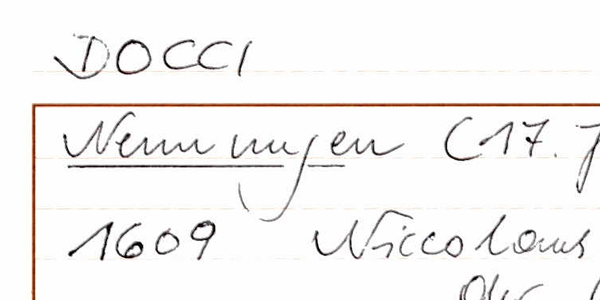 DOCCI
Nennungen (17. J
1609 Niccolaus